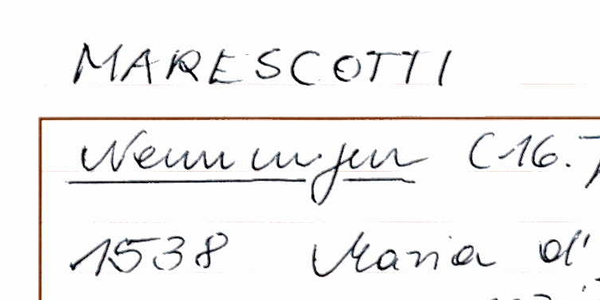 MARESCOTTI
Nennungen (16.
1538 Maria d'